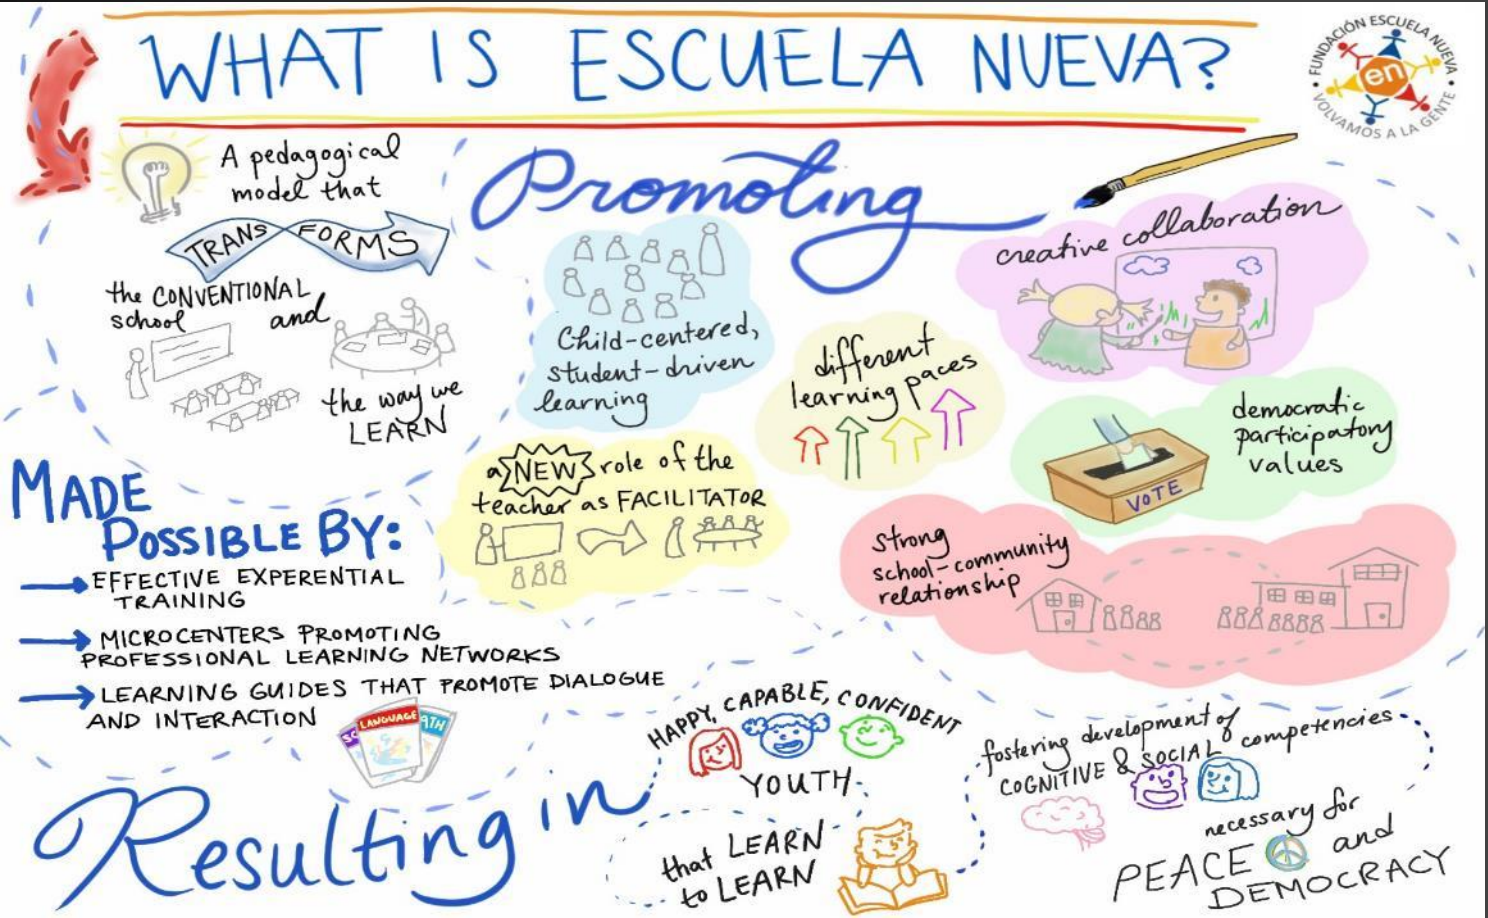 WHAT IS ESCUELA NUEVA?
FUNDACIÓN ESCUELA NUEVA
en
VOLVAMOS A LA GENTE
A pedagogical
model that
TRANSFORMS
the CONVENTIONAL
school and
the way we
LEARN
Promoting
Child-centered,
student-driven
learning
different
learning paces
creative collaboration
democratic
participatory
values
VOTE
a NEW role of the
teacher as FACILITATOR
strong
school-community
relationship
MADE
POSSIBLE BY:
EFFECTIVE EXPERENTIAL
TRAINING
MICROCENTERS PROMOTING
PROFESSIONAL LEARNING NETWORKS
LEARNING GUIDES THAT PROMOTE DIALOGUE
AND INTERACTION
SC
LANGUAGE
ATH
Resulting in
HAPPY, CAPABLE, CONFIDENT
YOUTH
that LEARN
to LEARN
fostering development of
COGNITIVE & SOCIAL competencies
necessary for
PEACE and
DEMOCRACY